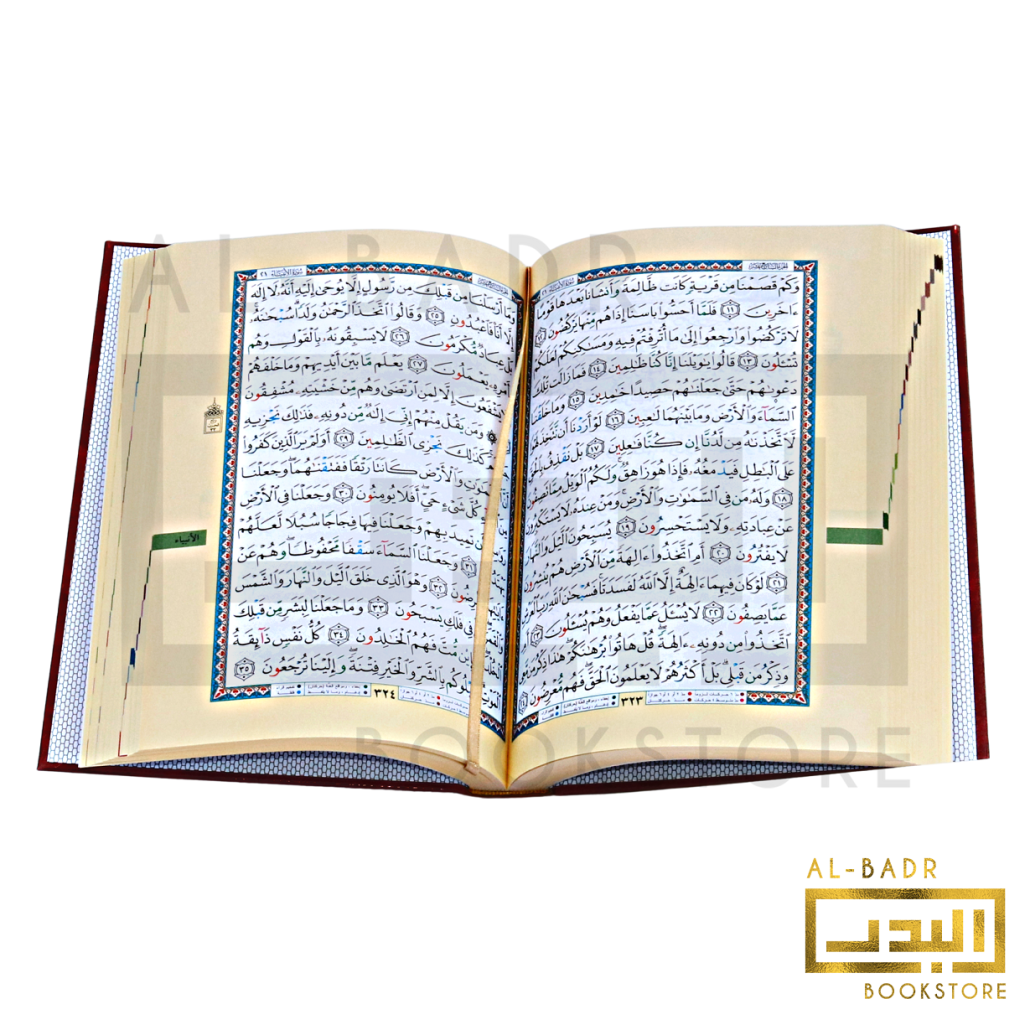 AL-BADR
وَكَمْ قَصَمْنَا مِن قَرْيَةٍ كَانَتْ ظَالِمَةً وَأَنشَأْنَا بَعْدَهَا قَوْمًا
ءَاخَرِينَ ١١ فَلَمَّآ أَحَسُّوا۟ بَأْسَنَآ إِذَا هُم مِّنْهَا يَرْكُضُونَ
لَا تَرْكُضُوا۟ وَٱرْجِعُوٓا۟ إِلَىٰ مَآ أُتْرِفْتُمْ فِيهِ وَمَسَٰكِنِكُمْ لَعَلَّكُمْ
تُسْـَٔلُونَ ١٣ قَالُوا۟ يَٰوَيْلَنَآ إِنَّا كُنَّا ظَٰلِمِينَ ١٤ فَمَا زَالَت تِّلْكَ
دَعْوَىٰهُمْ حَتَّىٰ جَعَلْنَٰهُمْ حَصِيدًا خَٰمِدِينَ ١٥ وَمَا خَلَقْنَا
ٱلسَّمَآءَ وَٱلْأَرْضَ وَمَا بَيْنَهُمَا لَٰعِبِينَ ١٦ لَوْ أَرَدْنَآ أَن نَّتَّخِذَ لَهْوًا
لَّٱتَّخَذْنَٰهُ مِن لَّدُنَّآ إِن كُنَّا فَٰعِلِينَ ١٧ بَلْ نَقْذِفُ بِٱلْحَقِّ
عَلَى ٱلْبَٰطِلِ فَيَدْمَغُهُۥ فَإِذَا هُوَ زَاهِقٌ وَلَكُمُ ٱلْوَيْلُ مِمَّا تَصِفُونَ
١٨ وَلَهُۥ مَن فِى ٱلسَّمَٰوَٰتِ وَٱلْأَرْضِ وَمَنْ عِندَهُۥ لَا يَسْتَكْبِرُونَ
عَنْ عِبَادَتِهِۦ وَلَا يَسْتَحْسِرُونَ ١٩ يُسَبِّحُونَ ٱلَّيْلَ وَٱلنَّهَارَ
لَا يَفْتُرُونَ ٢٠ أَمِ ٱتَّخَذُوٓا۟ ءَالِهَةً مِّنَ ٱلْأَرْضِ هُمْ يُنشِرُونَ
٢١ لَوْ كَانَ فِيهِمَآ ءَالِهَةٌ إِلَّا ٱللَّهُ لَفَسَدَتَا فَسُبْحَٰنَ ٱللَّهِ رَبِّ ٱلْعَرْشِ
عَمَّا يَصِفُونَ ٢٢ لَا يُسْـَٔلُ عَمَّا يَفْعَلُ وَهُمْ يُسْـَٔلُونَ ٢٣ أَمِ
ٱتَّخَذُوا۟ مِن دُونِهِۦٓ ءَالِهَةً قُلْ هَاتُوا۟ بُرْهَٰنَكُمْ هَٰذَا ذِكْرُ مَن مَّعِىَ
وَذِكْرُ مَن قَبْلِى بَلْ أَكْثَرُهُمْ لَا يَعْلَمُونَ ٱلْحَقَّ فَهُم مُّعْرِضُونَ ٢٤
٣٢٣
سُورَةُ الأَنبِيَاءِ ٢١
وَمَآ أَرْسَلْنَا مِن قَبْلِكَ مِن رَّسُولٍ إِلَّا نُوحِىٓ إِلَيْهِ أَنَّهُۥ لَآ إِلَٰهَ
إِلَّآ أَنَا۠ فَٱعْبُدُونِ ٢٥ وَقَالُوا۟ ٱتَّخَذَ ٱلرَّحْمَٰنُ وَلَدًا سُبْحَٰنَهُۥ
بَلْ عِبَادٌ مُّكْرَمُونَ ٢٦ لَا يَسْبِقُونَهُۥ بِٱلْقَوْلِ وَهُم
بِأَمْرِهِۦ يَعْمَلُونَ ٢٧ يَعْلَمُ مَا بَيْنَ أَيْدِيهِمْ وَمَا خَلْفَهُمْ
يَشْفَعُونَ إِلَّا لِمَنِ ٱرْتَضَىٰ وَهُم مِّنْ خَشْيَتِهِۦ مُشْفِقُونَ
وَمَن يَقُلْ مِنْهُمْ إِنِّىٓ إِلَٰهٌ مِّن دُونِهِۦ فَذَٰلِكَ نَجْزِيهِ
كَذَٰلِكَ نَجْزِى ٱلظَّٰلِمِينَ ٢٩ أَوَلَمْ يَرَ ٱلَّذِينَ كَفَرُوٓا۟
ٱلسَّمَٰوَٰتِ وَٱلْأَرْضَ كَانَتَا رَتْقًا فَفَتَقْنَٰهُمَا وَجَعَلْنَا
كُلَّ شَىْءٍ حَىٍّ أَفَلَا يُؤْمِنُونَ ٣٠ وَجَعَلْنَا فِى ٱلْأَرْضِ
أَن تَمِيدَ بِهِمْ وَجَعَلْنَا فِيهَا فِجَاجًا سُبُلًا لَّعَلَّهُمْ
٣١ وَجَعَلْنَا ٱلسَّمَآءَ سَقْفًا مَّحْفُوظًا وَهُمْ عَنْ
مُعْرِضُونَ ٣٢ وَهُوَ ٱلَّذِى خَلَقَ ٱلَّيْلَ وَٱلنَّهَارَ وَٱلشَّمْسَ
فِى فَلَكٍ يَسْبَحُونَ ٣٣ وَمَا جَعَلْنَا لِبَشَرٍ مِّن قَبْلِكَ
مِّتَّ فَهُمُ ٱلْخَٰلِدُونَ ٣٤ كُلُّ نَفْسٍ ذَآئِقَةُ
ٱلْمَوْتِ وَنَبْلُوكُم بِٱلشَّرِّ وَٱلْخَيْرِ فِتْنَةً وَإِلَيْنَا تُرْجَعُونَ ٣٥
٣٢٤
الأنبياء
BOOKSTORE
AL-BADR
البدر
BOOKSTORE